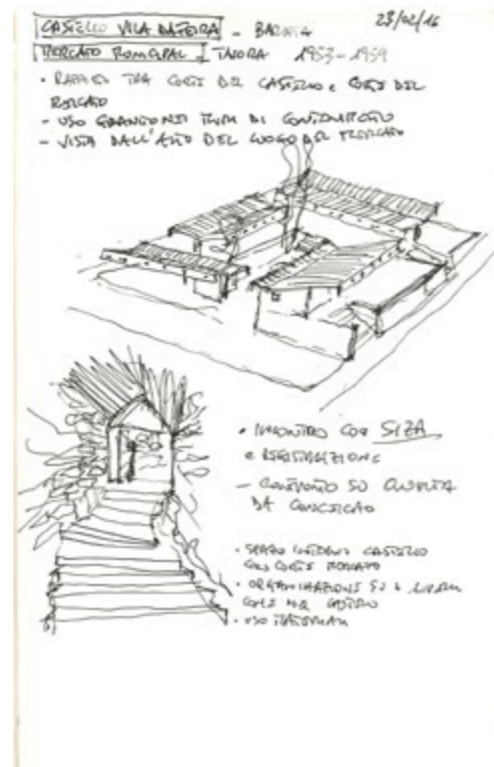 CASTELLO VILA DA FEIRA - 23/02/16
MERCATO MUNICIPAL TAVORA 1953-1959
• RAPPORTO TRA CORTE DEL CASTELLO e CORTE DEL
MERCATO
- USO MURI DI CONTENIMENTO
- VISTA DALL'ALTO DEL LUOGO DEL MERCATO
• INCONTRO CON SIZA
e REGISTRAZIONE
- SU QUINTA
DA CONCEICAO
• SPAZIO INTERNO CASTELLO
CON CORTE MERCATO
• ORGANIZZAZIONE SU
COME NEL CASTELLO
• USO MATERIALI